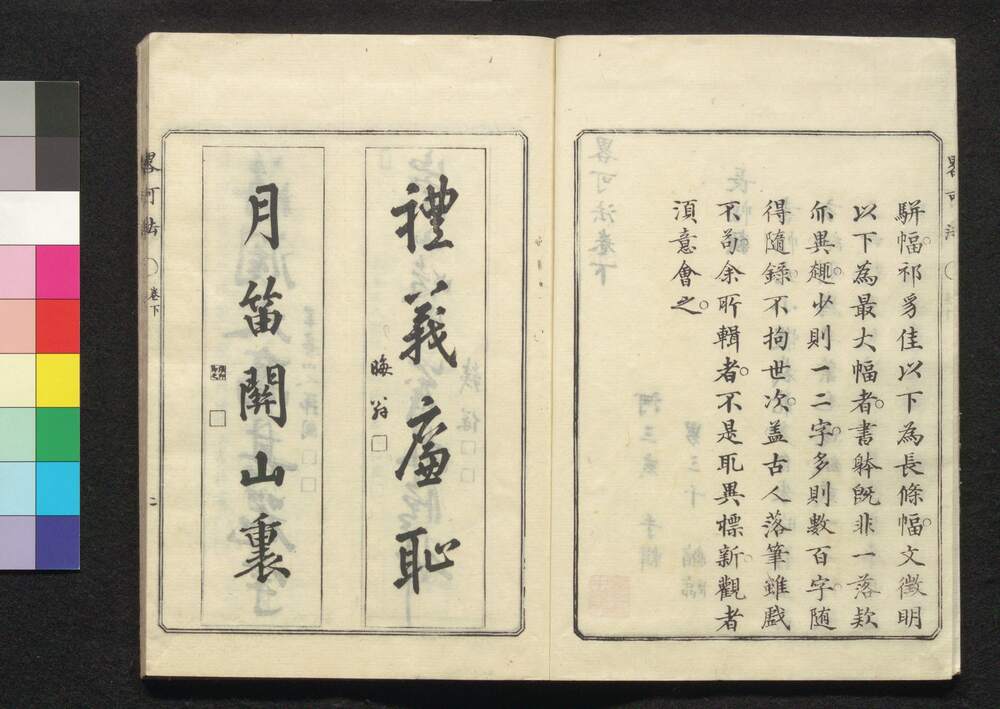 駢幅祁豸佳以下為長條幅文徵明
以下為最大幅者書躰既非一落款
尓異趣少則一二字多則數百字随
得隨錄不拘世次盖古人落筆雖戲
不苟余所輯者不是耴異標新觀者
湏意會之
畧可法
禮義廉恥
晦翁
月笛關山裏
畧可法 卷下
二